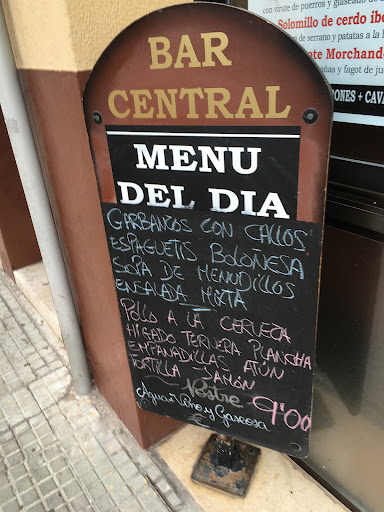 BAR
CENTRAL
MENU
DEL DIA
GARBANZOS CON CALLOS
ESPAGUETIS BOLONESA
SOPA DE MENUDILLOS
ENSALADA MIXTA
POLLO A LA CERVEZA
HIGADO TERNERA PLANCHA
EMPANADILLAS ATÚN
TORTILLA - JAMÓN
Postre
Agua Vino y Gaseosa
9'00
€
con virute de puerros y glaseado de
Solomillo de cerdo ibe
de serrano y patatas a la
te Morchando
ñas y fagot de ju
ONES + CAVA